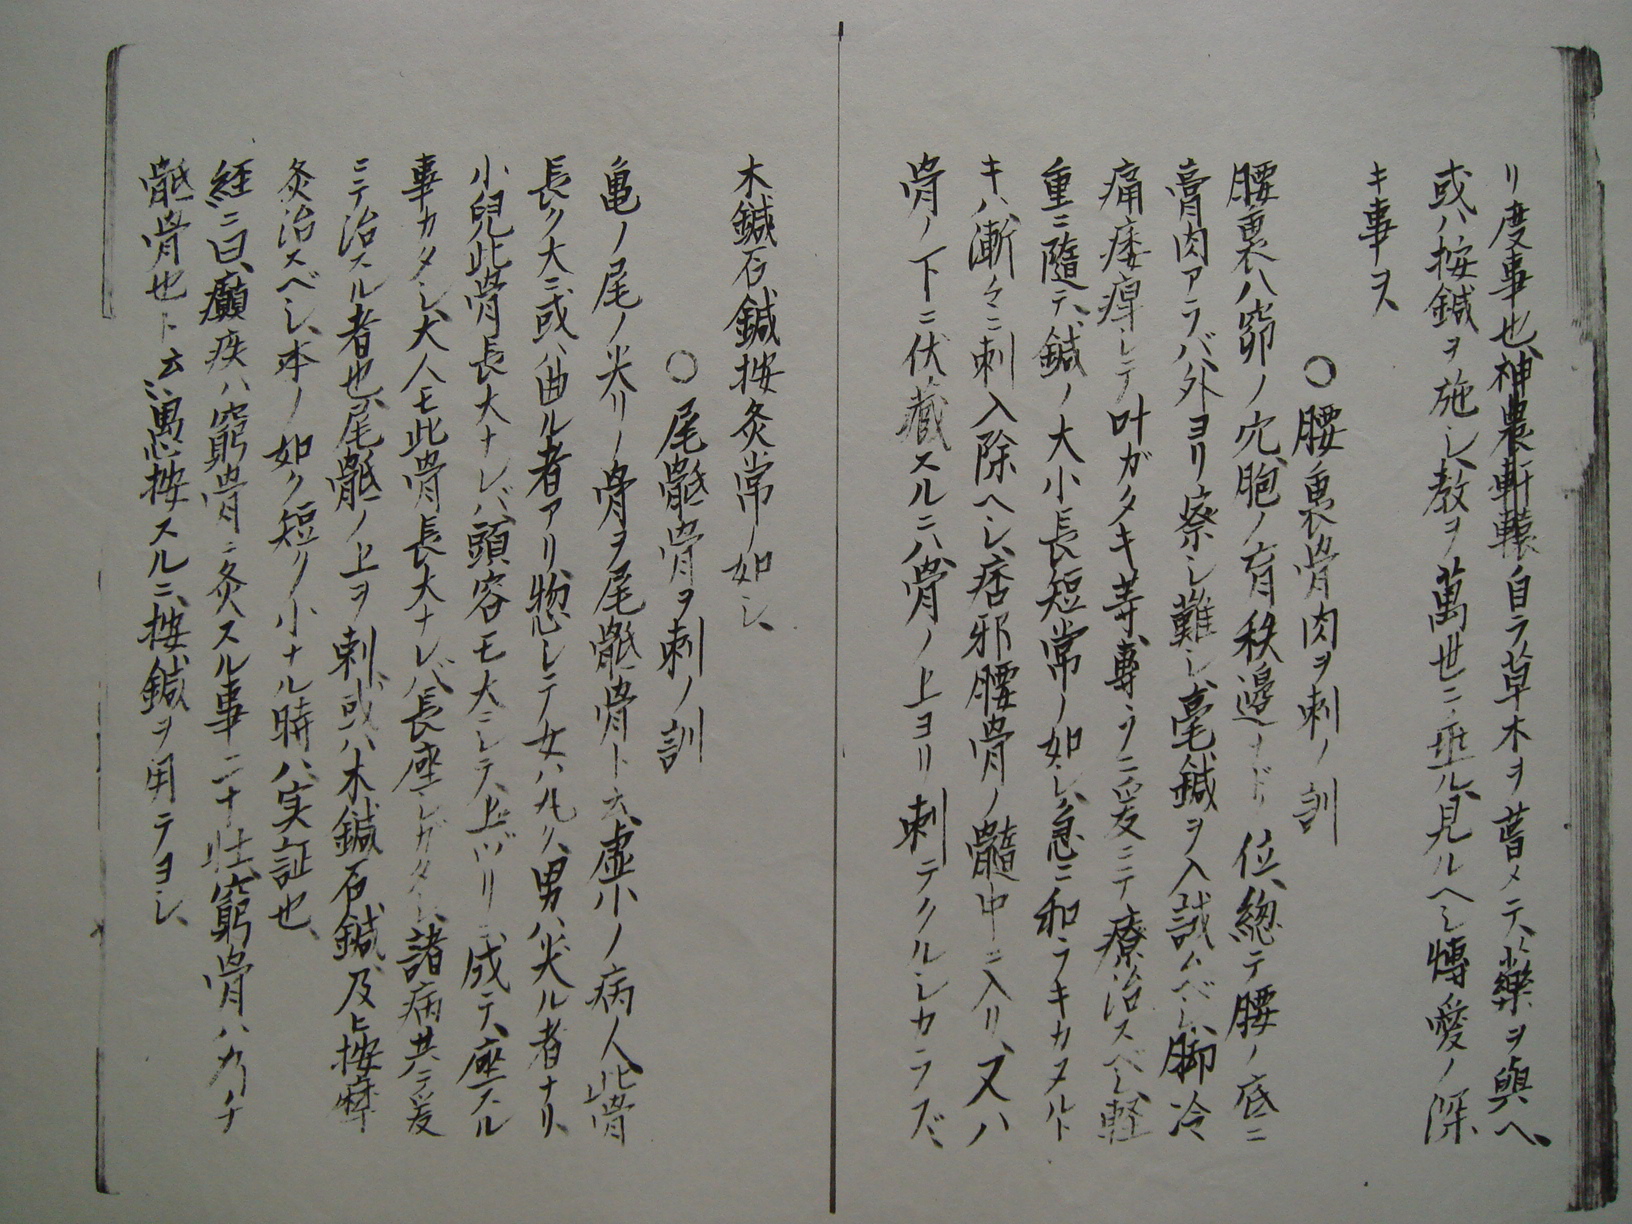 リ度事也、神農軒轅自ラ草木ヲ嘗メテ、薬ヲ與ヘ、
或ハ按鍼ヲ施シ、教ヲ萬世ニ垂ル、見ルヘシ慱愛ノ深
キ事ヲ
〇腰裏骨肉ヲ刺ノ訓
腰裏ハ窌ノ穴、胞ノ育秩邊ナドノ位、総テ腰ノ底ニ
膏肉アラバ、外ヨリ察シ難シ、毫鍼ヲ入試ムベシ、脚冷
痛痿痺シテ叶ガタキ等、専ラニ爰ニテ療治スベシ、軽
重ニ隨テ、鍼ノ大小長短常ノ如シ、急ニ和ラキカヌルト
キハ、漸々ニ刺入除ヘシ、痞邪腰骨ノ髓中ニ入リ、又ハ
骨ノ下ニ伏藏スルニハ、骨ノ上ヨリ刺テクルシカラズ、
木鍼石鍼按灸常ノ如シ、
〇尾骶骨ヲ刺ノ訓
亀ノ尾ノ尖リノ骨ヲ尾骶骨ト云、虚小ノ病人此骨
長ク大ニ、或ハ曲ル者アリ、惣シテ女ハ丸ク、男ハ尖ル者ナリ、
小兒此骨長大ナレバ、頭容モ大ニシテ、上ヅリニ成テ、座スル
事カタシ、大人モ此骨長大ナレバ、長座シガタシ、諸病共ニ爰
ニテ治スル者也、尾骶ノ上ヲ刺、或ハ木鍼石鍼、及ヒ按摩
灸治スベシ、本ノ如ク短ク小ナル時ハ、実証也、
経ニ曰、癲疾ハ窮骨ニ灸スル事二十壮、窮骨ハ乃チ
骶骨也ト云ハ、愚按スルニ、按鍼ヲ用テヨシ、